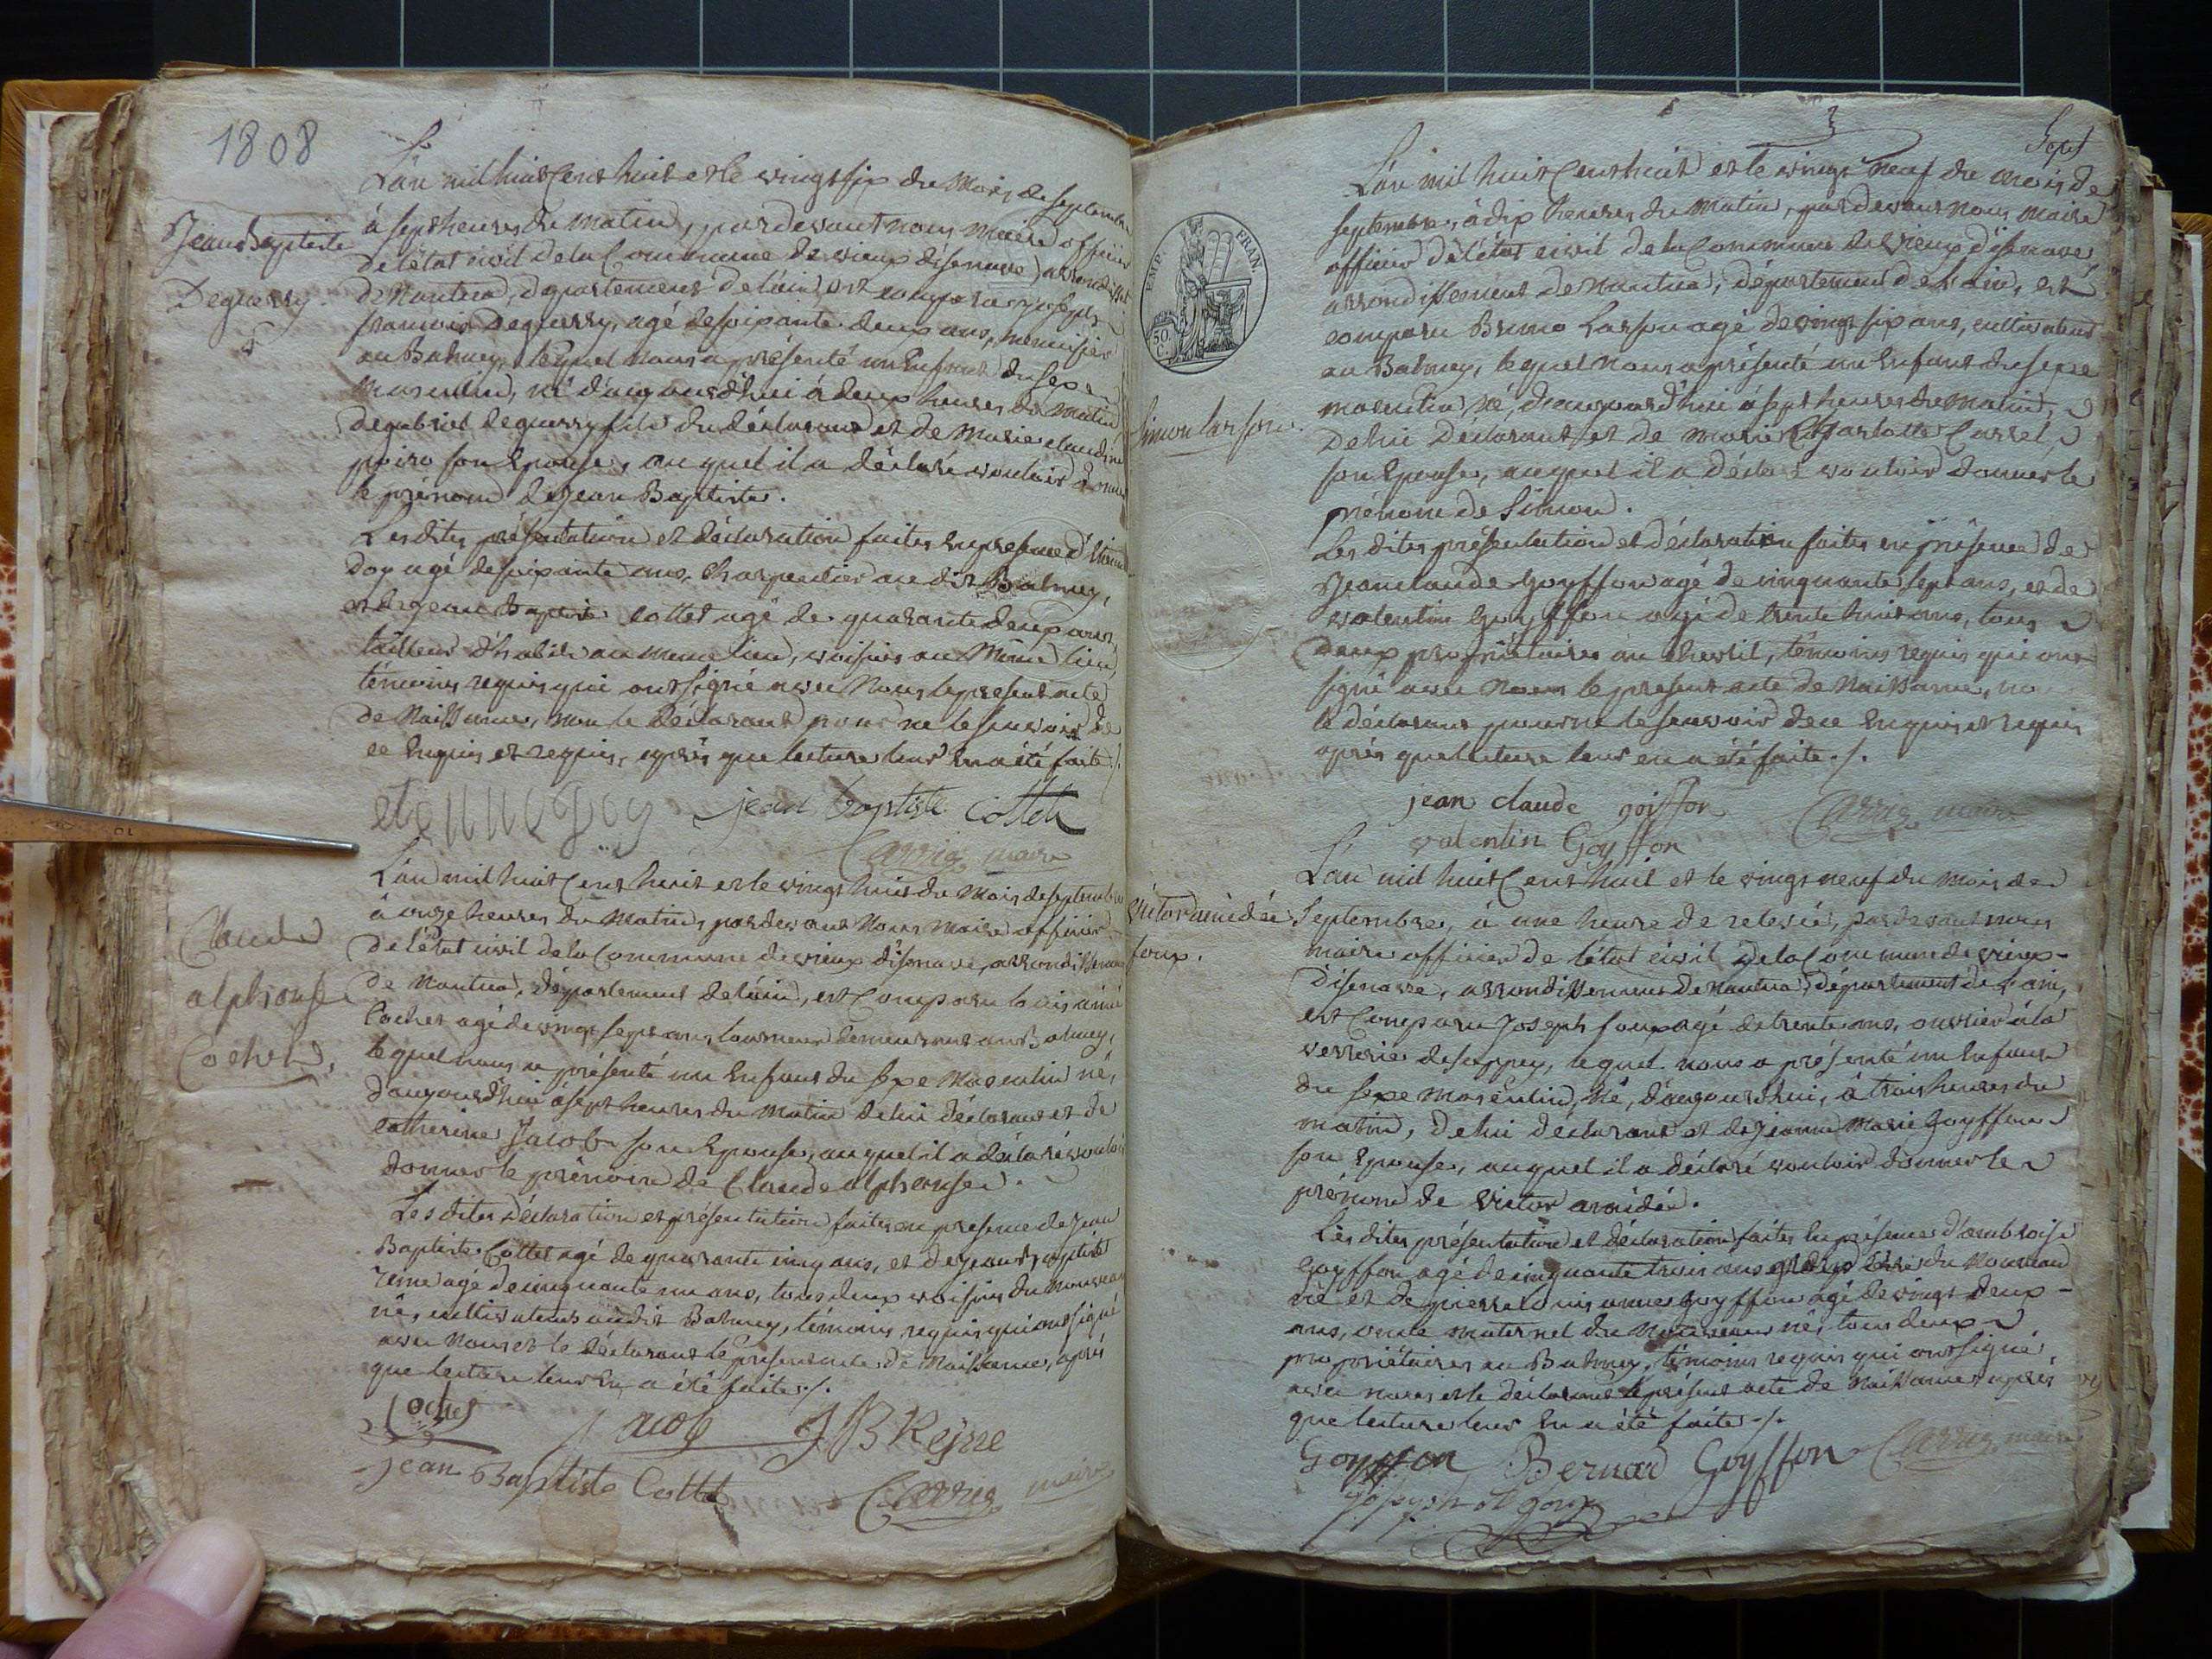 1808
L'an mil huit Cent huit et le vingt six du Mois de septembre
à sept heures du matin, par devant nous maire officier
de l'état civil de la Commune de vieux d'isenave, arrondisst
de Nantua, département de l'ain, est comparu joseph
francois Deguerry, agé de soixante deux ans, menuisier
au Balmey, lequel nous a présenté un Enfant du sexe
masculin, né d'aujourd'hui à deux heures du matin
de gabriel deguerry fils du déclarant et de Marie claudine
son Epouse, auquel il a déclaré vouloir donner
le prénom de Jean Baptiste.
Jean Baptiste
Deguerry.
Les dites présentation et déclaration faites en presence d'Etienne
Doy agé de soixante ans, charpentier au dit Balmey,
et de jean Baptiste Cottet agé de quarante deux ans
tailleur d'habits au meme lieu, voisins au Même lieu
témoins requis qui ont signé avec Nous le present acte
de Naissance, non le déclarant pour ne le scavoir de
ce Enquis et requis, après que lecture leur En a été faite ./.
jean baptiste Cottet
Carrig maire
L'an mil huit Cent huit et le vingt huit du Mois de septembre
à onze heures du Matin, par devant Nous Maire officier
de l'état civil de la Commune de vieux d'isenave, arrondissement
de Nantua, département de l'ain, est Comparu louis aimé
Cochet agé de vingt sept ans tourneur demeurant au Balmey,
lequel nous a présenté un Enfant du sexe Masculin né,
d'aujourd'hui à sept heures du Matin de lui déclarant et de
catherine Jacob son Epouse, auquel il a déclaré vouloir
donner le prénom de Claude alphonse.
Claude
alphonse
Cochet,
Les dites déclaration et présentation faites en presence de Jean
Baptiste Cottet agé de quarante cinq ans, et de jean baptiste
reine agé de cinquante un ans, tous deux voisins du Nouveau
né, cultivateurs audit Balmey, témoins requis qui ont signé
avec Nous et le déclarant le present acte de Naissance, après
que lecture leur En a été faite ./.
Cochet Jacob JB Rejne
jean Baptiste Cottet Carrig maire
3
Sept
L'an mil huit Cent huit et le vingt neuf du mois de
septembre, à dix heures du Matin, par devant nous maire
officier de l'état civil de la Commune de vieux d'isenave,
arrondissement de Nantua, département de l'ain, est
comparu Bruno Larson agé de vingt six ans, cultivateur
au Balmey, lequel nous a présenté un Enfant du sexe
masculin, né, d'aujourd'hui à sept heures du matin,
de lui déclarant et de marie Charlotte Carrel
son Epouse, auquel il a déclaré vouloir donner le
prénom de Simon.
EMP. FRAN.
50 C.
Simon larson.
Les dites présentation et déclaration faites en présence de
Jean claude Goyffon agé de cinquante sept ans, et de
valentin Goyffon agé de trente huit ans, tous
deux propriétaires au chevril, témoins requis qui ont
signé avec Nous le present acte de Naissance, non
le déclarant pour ne le scavoir de ce Enquis et requis
après que lecture leur en a été faite ./.
jean claude goiffon Carrig maire
valentin Goyffon
L'an mil huit Cent huit et le vingt neuf du mois de
Septembre, à une heure de relevée, par devant nous
maire officier de l'état civil de la Commune de vieux-
d'isenave, arrondissement de Nantua, département de l'ain,
est Comparu Joseph foux agé de trente ans, ouvrier à la
verrerie de sappey, lequel nous a présenté un Enfant
du sexe masculin, Né, d'aujourd'hui, à trois heures du
matin, de lui declarant et de jeanne Marie Goyffon
son Epouse, auquel il a déclaré vouloir donner le
prénom de Victor amédée.
victor amédée
foux.
Les dites présentation et déclaration faites En présence d'ambroise
Goyffon agé de cinquante trois ans du Nouveau
né et de pierre louis Goyffon agé de vingt deux-
ans, oncle maternel du Nouveau né, tous deux
propriétaires au Balmey, témoins requis qui ont signé
avec nous et le déclarant le présent acte de Naissance après
que lecture leur En a été faite ./.
Goyffon Bernard Goyffon Carrig maire